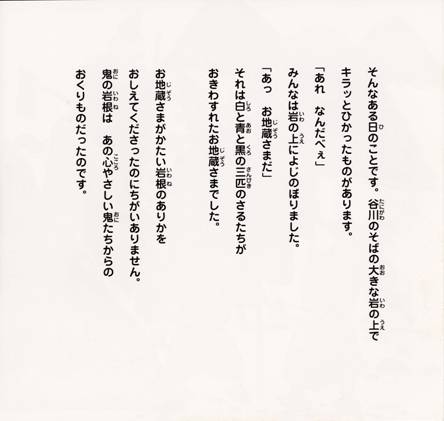 そんなある日のことです。谷川のそばの大きな岩の上で
キラッとひかったものがあります。
「あれ　なんだべぇ」
みんなは岩の上によじのぼりました。
「あっ　お地蔵さまだ」
それは白と青と黒の三匹のさるたちが
おきわすれたお地蔵さまでした。
お地蔵さまがかたい岩根のありかを
おしえてくださったのにちがいありません。
鬼の岩根は　あの心やさしい鬼たちからの
おくりものだったのです。